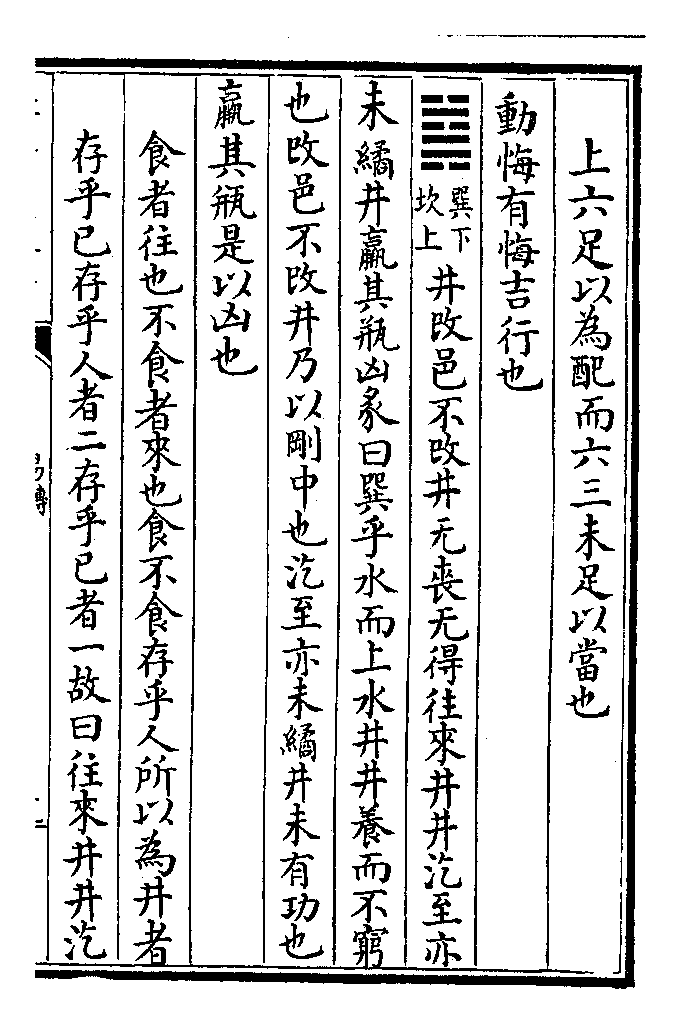 上六足以為配而六三未足以當也
動悔有悔吉行也
䷯巽下坎上井改邑不改井无喪无得往來井井汔至亦
未繘井羸其瓶凶彖曰巽乎水而上水井井養而不窮
也改邑不改井乃以剛中也汔至亦未繘井未有功也
羸其瓶是以凶也
食者往也不食者來也食不食存乎人所以為井者
存乎已存乎人者二存乎已者一故曰往來井井汔
易傳